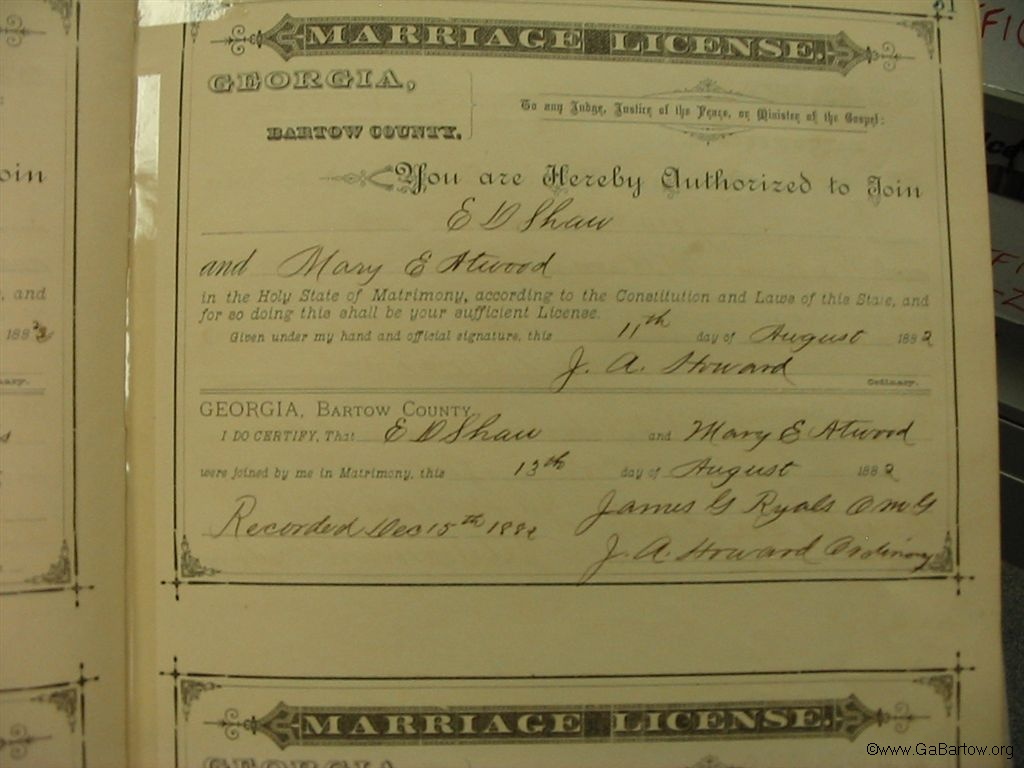 21
MARRIAGE LICENSE.
GEORGIA,
BARTOW COUNTY.
To any Judge, Justice of the Peace, or Minister of the Gospel:
You are Hereby Authorized to Join
E D Shaw
and Mary E Atwood
in the Holy State of Matrimony, according to the Constitution and Laws of this State, and
for so doing this shall be your sufficient License.
Given under my hand and official signature, this 11th day of August 1882
J. A. Howard
Ordinary.
GEORGIA, BARTOW COUNTY.
I DO CERTIFY, That E D Shaw and Mary E Atwood
were joined by me in Matrimony, this 13th day of August 1882
James G Ryals O M G
Recorded Dec 15th 1882
J. A. Howard Ordinary
MARRIAGE LICENSE.
GEORGIA,
oin
, and
188
nary.
©www.GaBartow.org